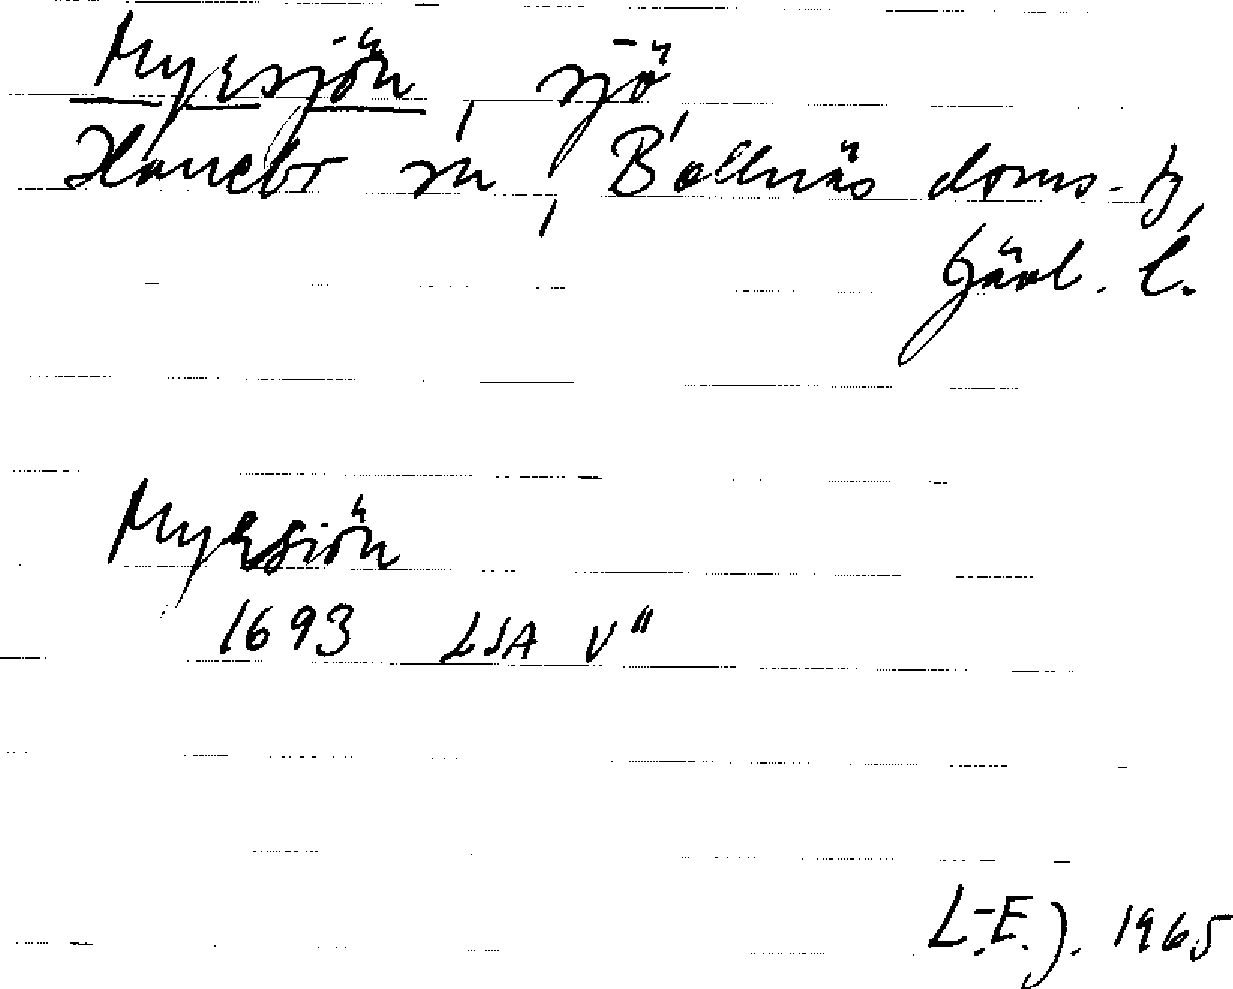 Myrsjön, sjö,
Hanebo sn, Bollnäs doms.-h,
Gävl. l.
Myrsiön
1693 LSA V"
L.-E. J. 1965